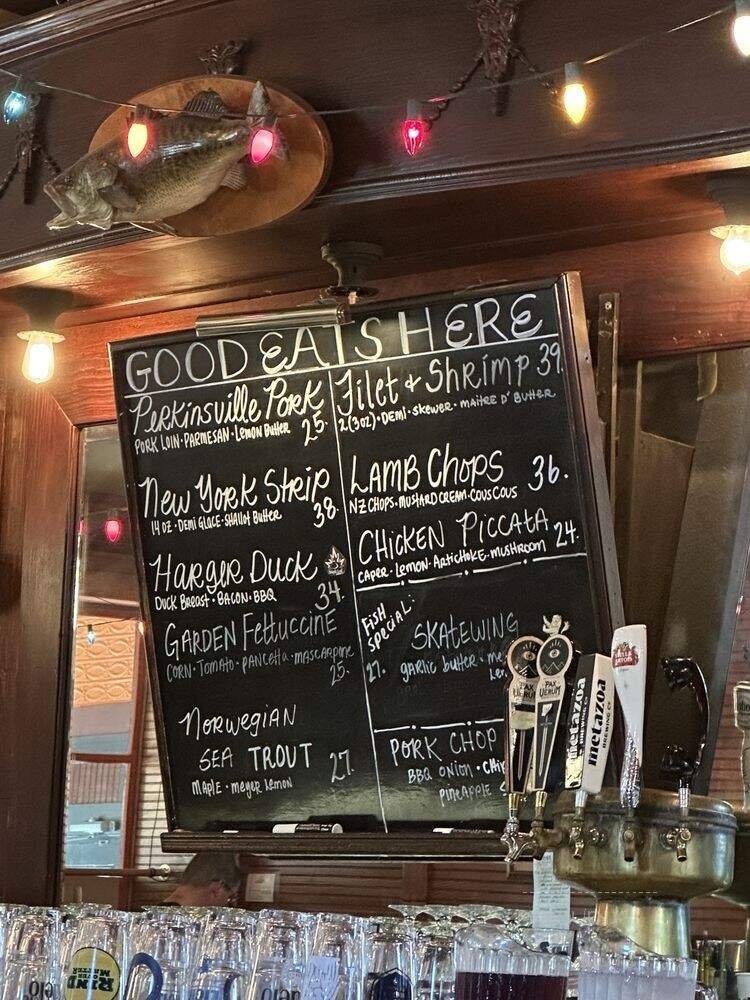 GOOD EATS HERE
Perkinsville Pork
PORK LOIN · PARMESAN · LEMON BUTTER 25.
New York Strip
14 OZ · DEMI GLACE · SHALLOT BUTTER 38.
HARGER DUCK
DUCK BREAST · BACON · BBQ 34.
GARDEN Fettuccine
CORN · TOMATO · PANCETTA · MASCARPONE
25.
Norwegian
SEA TROUT 27.
MAPLE · MEYER LEMON
Filet + Shrimp 39.
2(3oz) · DEMI · SKEWER · MAITRE D' BUTTER
LAMB CHOPS 36.
NZ CHOPS · MUSTARD CREAM · COUS COUS
CHICKEN PICCATA 24.
CAPER · LEMON · ARTICHOKE · MUSHROOM
FISH SPECIAL:
SKATEWING
27. garlic butter
PORK CHOP
BBQ ONION
PINEAPPLE
PAX VERUM
PAX VERUM
metazoa
BREWING CO.
metazoa
BREWING CO.
STELLA ARTOIS